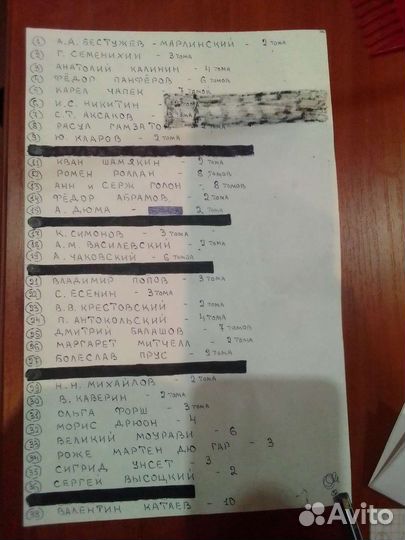 1 А.А. БЕСТУЖЕВ-МАРЛИНСКИЙ - 2 тома
2 Г. СЕМЕНИХИН - 3 тома
3 АНАТОЛИЙ КАЛИНИН - 4 тома
4 ФЁДОР ПАНФЁРОВ - 6 томов
5 КАРЕЛ ЧАПЕК 7 томов
6 И.С. НИКИТИН
7 С.Т. АКСАКОВ
8 РАСУЛ ГАМЗАТО
9 Ю. КЛАРОВ - 2 тома
11 ИВАН ШАМЯКИН - 2 тома
12 РОМЕН РОЛЛАН - 8 томов
13 АНН и СЕРЖ ГОЛОН - 8 томов
14 ФЁДОР АБРАМОВ - 2 тома
15 А. ДЮМА - 2 тома
17 К. СИМОНОВ - 3 тома
18 А.М. ВАСИЛЕВСКИЙ - 2 тома
19 А. ЧАКОВСКИЙ - 6 томов
21 ВЛАДИМИР ПОПОВ - 3 тома
22 С. ЕСЕНИН - 3 тома
23 В.В. КРЕСТОВСКИЙ - 2 тома
24 П. АНТОКОЛЬСКИЙ - 4 тома
25 ДМИТРИЙ БАЛАШОВ - 7 томов
26 МАРГАРЕТ МИТЧЕЛЛ - 2 тома
27 БОЛЕСЛАВ ПРУС - 2 тома
29 Н.Н. МИХАЙЛОВ - 2 тома
30 В. КАВЕРИН - 2 тома
31 ОЛЬГА ФОРШ - 3 тома
32 МОРИС ДРЮОН - 4
33 ВЕЛИКИЙ МОУРАВИ - 6
34 РОЖЕ МАРТЕН ДЮ ГАР - 3
35 СИГРИД УНСЕТ - 3
36 СЕРГЕЙ ВЫСОЦКИЙ - 2
38 ВАЛЕНТИН КАТАЕВ - 10
Avito